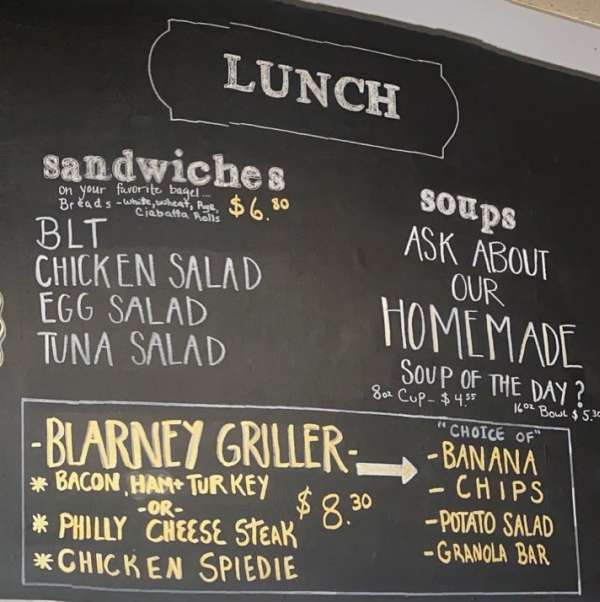 LUNCH
sandwiches
on your favorite bagel...
Breads - white, wheat, Rye,
Ciabatta Rolls
$6.80
BLT
CHICKEN SALAD
EGG SALAD
TUNA SALAD
soups
ASK ABOUT
OUR
HOMEMADE
SOUP OF THE DAY?
8oz Cup - $4.55
16oz Bowl $5.30
-BLARNEY GRILLER-
* BACON, HAM + TURKEY
-OR-
* PHILLY CHEESE STEAK
* CHICKEN SPIEDIE
$8.30
"CHOICE OF"
-BANANA
- CHIPS
-POTATO SALAD
-GRANOLA BAR